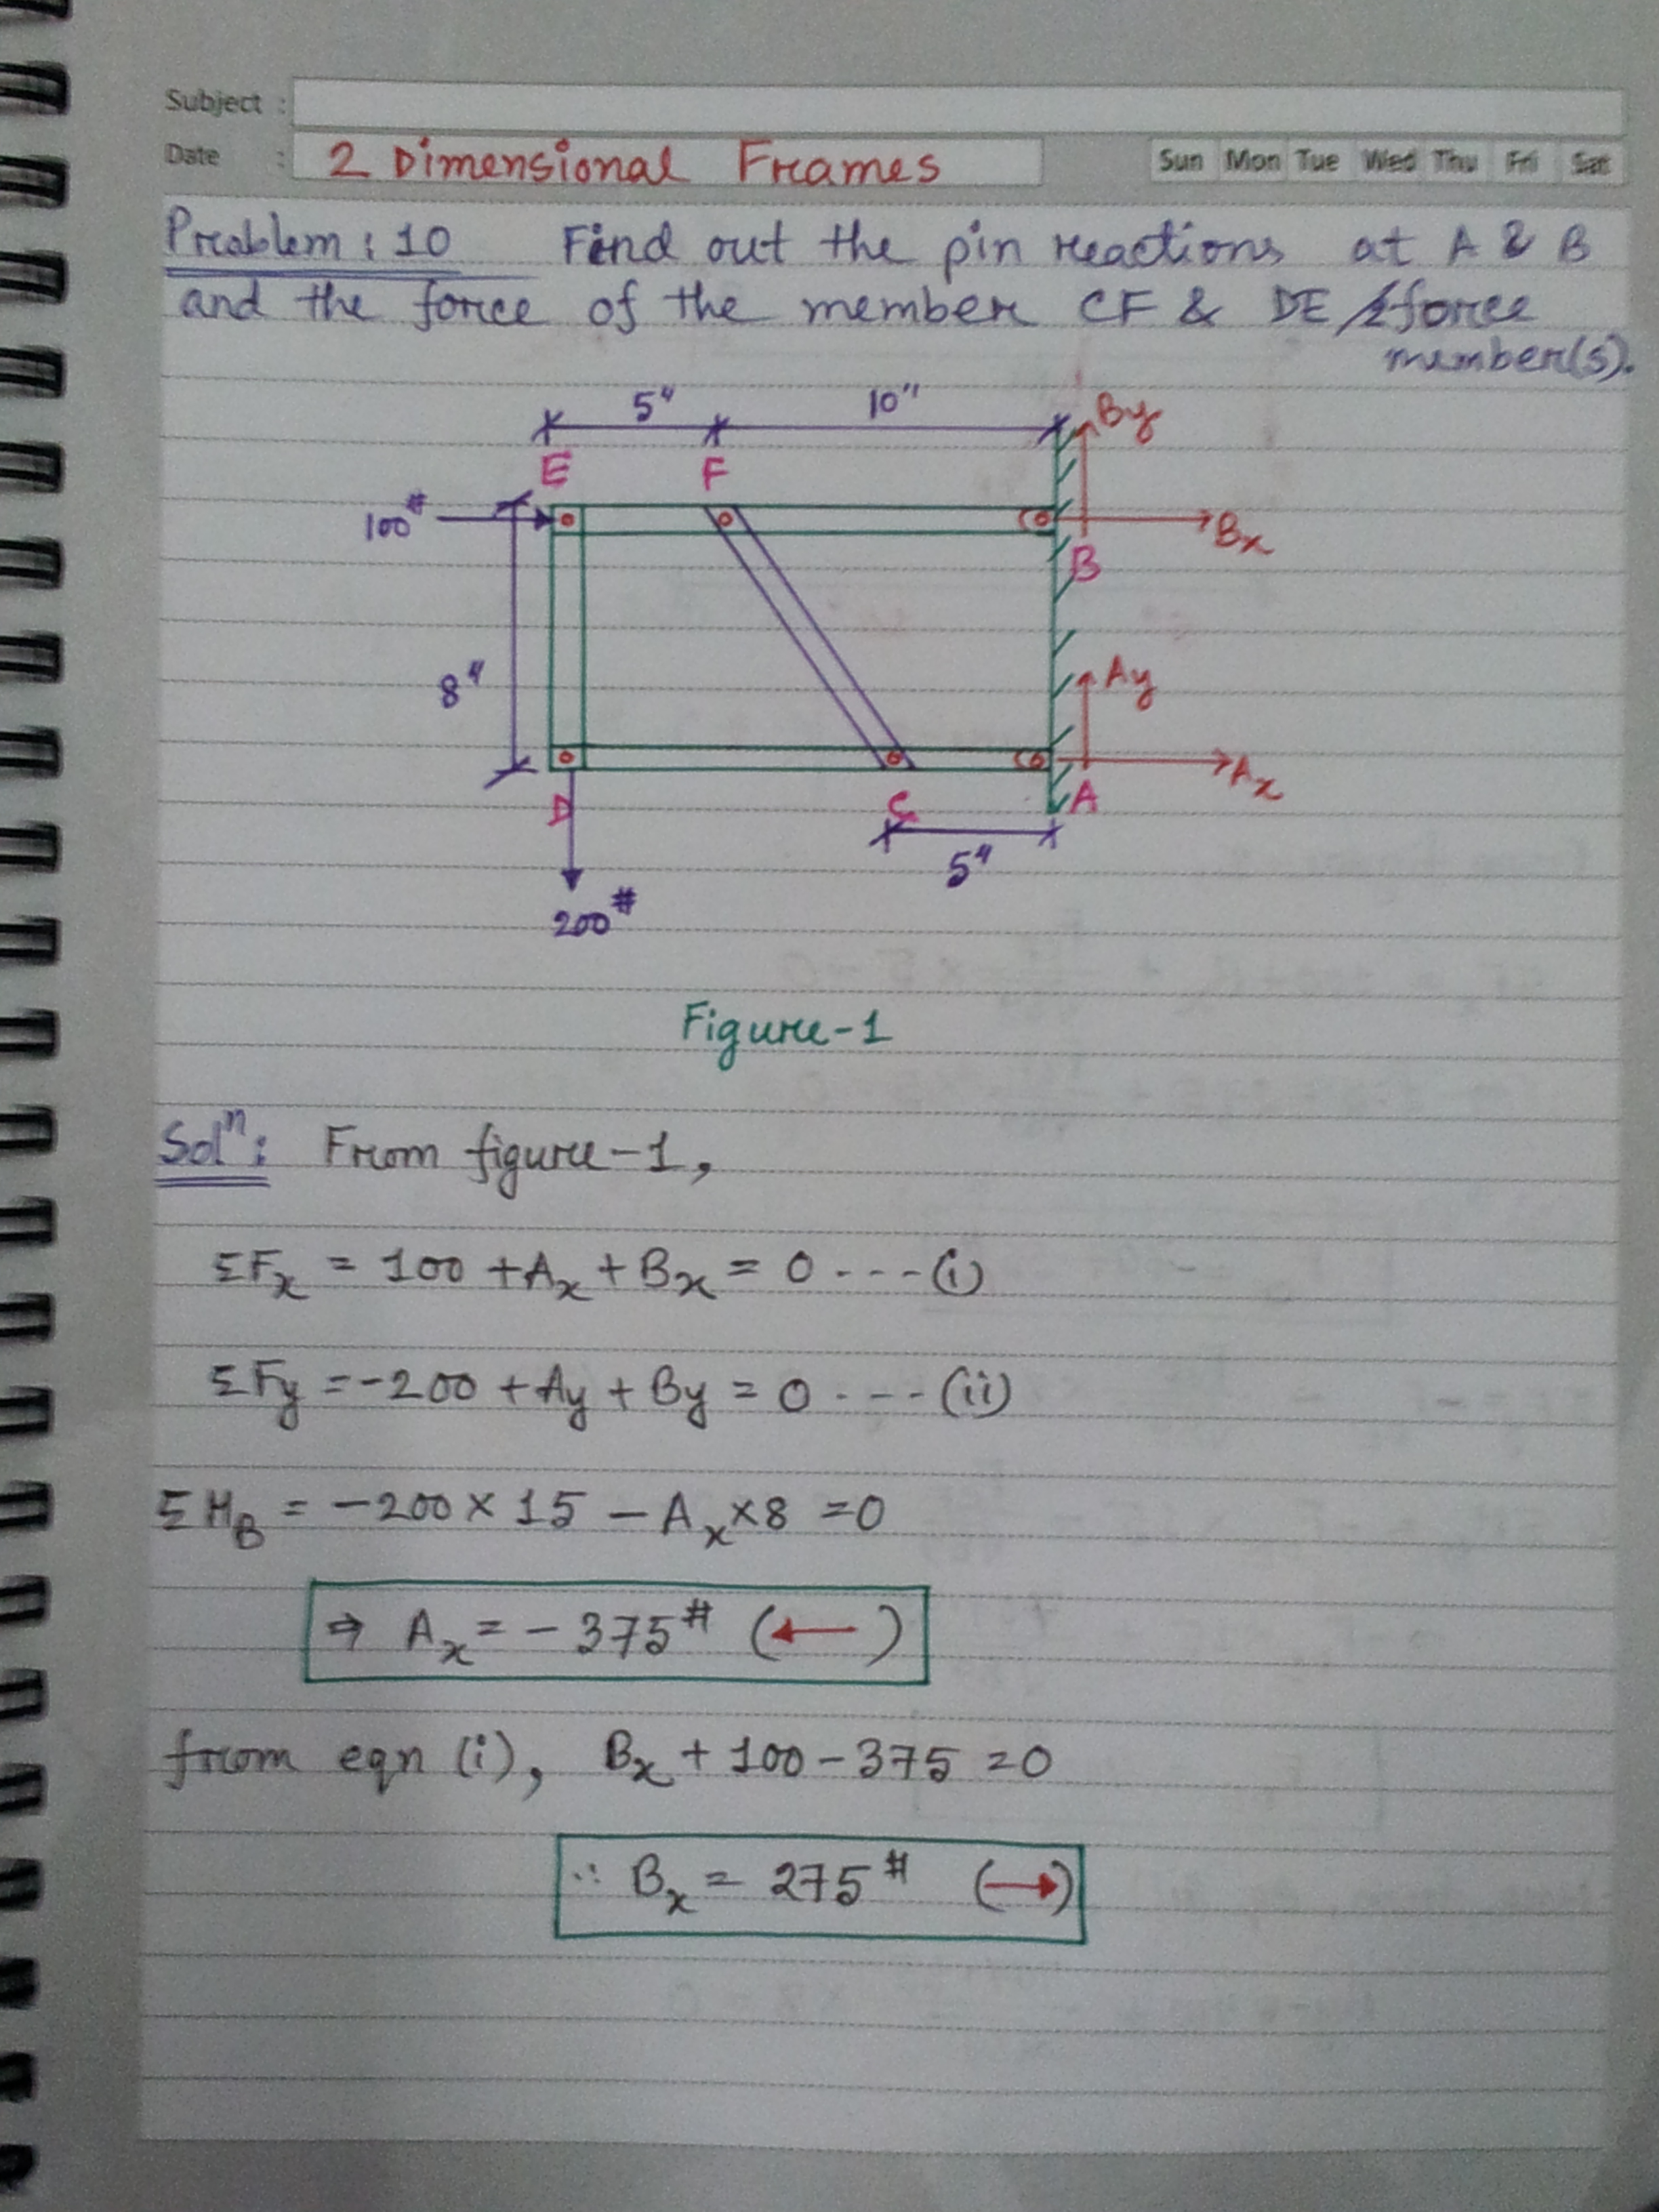 Subject :
Date : 2 Dimensional Frames Sun Mon Tue Wed Thu Fri Sat
Problem : 10 Find out the pin reactions at A & B
and the force of the member CF & DE /2 force
member(s).
5" 10" By
E F
100# Bx
B
8" Ay
Ax
D C A
5"
200#
Figure-1
Solⁿ: From figure-1,
ΣFx = 100 + Ax + Bx = 0 ---- (i)
ΣFy = -200 + Ay + By = 0 ---- (ii)
ΣMB = -200 × 15 - Ax × 8 = 0
⇒ Ax = - 375# (←)
from eqn (i), Bx + 100 - 375 = 0
∴ Bx = 275# (→)